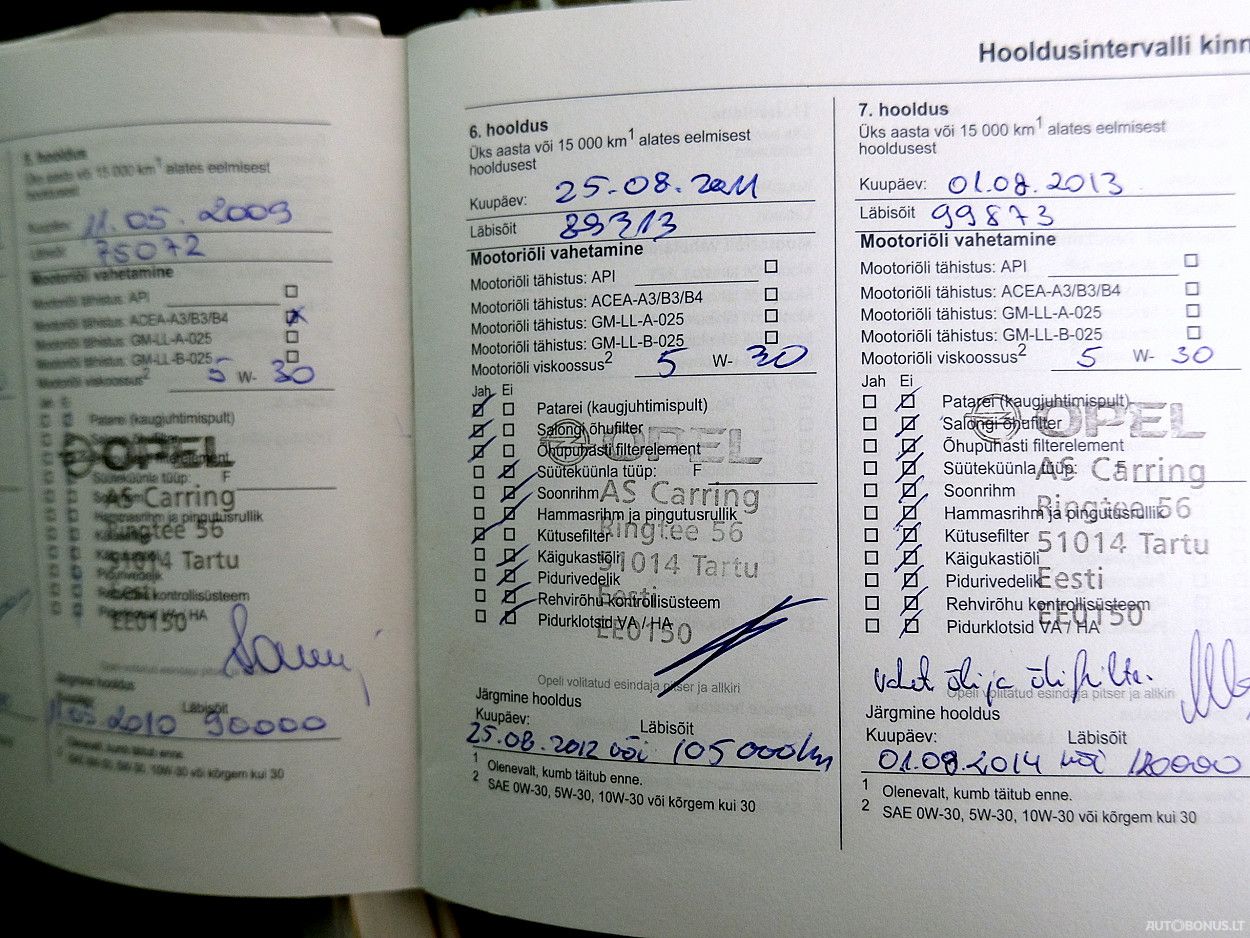 Hooldusintervalli kinn
5. hooldus
Üks aasta või 15 000 km1 alates eelmisest
hooldusest
Kuupäev: 11.05.2009
Läbisõit 75072
Mootoriõli vahetamine
Mootoriõli tähistus: API
Mootoriõli tähistus: ACEA-A3/B3/B4
Mootoriõli tähistus: GM-LL-A-025
Mootoriõli tähistus: GM-LL-B-025
Mootoriõli viskoossus2 5 W- 30
Patarei (kaugjuhtimispult)
Süüteküünla tüüp: F
Hammasrihm ja pingutusrullik
Käigukastiõli
Pidurivedelik
Rehvirõhu kontrollisüsteem
Pidurklotsid VA / HA
OPEL
AS Carring
Ringtee 56
51014 Tartu
EE0150
Opeli volitatud esindaja
Järgmine hooldus
Läbisõit
11.05.2010 90000
1 Olenevalt, kumb täitub enne.
2 SAE 0W-30, 5W-30, 10W-30 või kõrgem kui 30
6. hooldus
Üks aasta või 15 000 km1 alates eelmisest
hooldusest
Kuupäev: 25.08.2011
Läbisõit 89313
Mootoriõli vahetamine
Mootoriõli tähistus: API
Mootoriõli tähistus: ACEA-A3/B3/B4
Mootoriõli tähistus: GM-LL-A-025
Mootoriõli tähistus: GM-LL-B-025
Mootoriõli viskoossus2 5 W- 30
Jah Ei
Patarei (kaugjuhtimispult)
Salongi õhufilter
Õhupuhasti filterelement
Süüteküünla tüüp: F
Soonrihm
Hammasrihm ja pingutusrullik
Kütusefilter
Käigukastiõli
Pidurivedelik
Rehvirõhu kontrollisüsteem
Pidurklotsid VA / HA
OPEL
AS Carring
Ringtee 56
51014 Tartu
Eesti
EE0150
Opeli volitatud esindaja pitser ja allkiri
Järgmine hooldus
Kuupäev: Läbisõit
25.08.2012 või 105 000km
1 Olenevalt, kumb täitub enne.
2 SAE 0W-30, 5W-30, 10W-30 või kõrgem kui 30
7. hooldus
Üks aasta või 15 000 km1 alates eelmisest
hooldusest
Kuupäev: 01.08.2013
Läbisõit 99873
Mootoriõli vahetamine
Mootoriõli tähistus: API
Mootoriõli tähistus: ACEA-A3/B3/B4
Mootoriõli tähistus: GM-LL-A-025
Mootoriõli tähistus: GM-LL-B-025
Mootoriõli viskoossus2 5 W- 30
Jah Ei
Patarei (kaugjuhtimispult)
Salongi õhufilter
Õhupuhasti filterelement
Süüteküünla tüüp: F
Soonrihm
Hammasrihm ja pingutusrullik
Kütusefilter
Käigukastiõli
Pidurivedelik
Rehvirõhu kontrollisüsteem
Pidurklotsid VA / HA
OPEL
AS Carring
Ringtee 56
51014 Tartu
Eesti
EE0150
vahet õli ja õlifilter.
Opeli volitatud esindaja pitser ja allkiri
Järgmine hooldus
Kuupäev: Läbisõit
01.08.2014 või 120000
1 Olenevalt, kumb täitub enne.
2 SAE 0W-30, 5W-30, 10W-30 või kõrgem kui 30
AUTOBONUS.LT